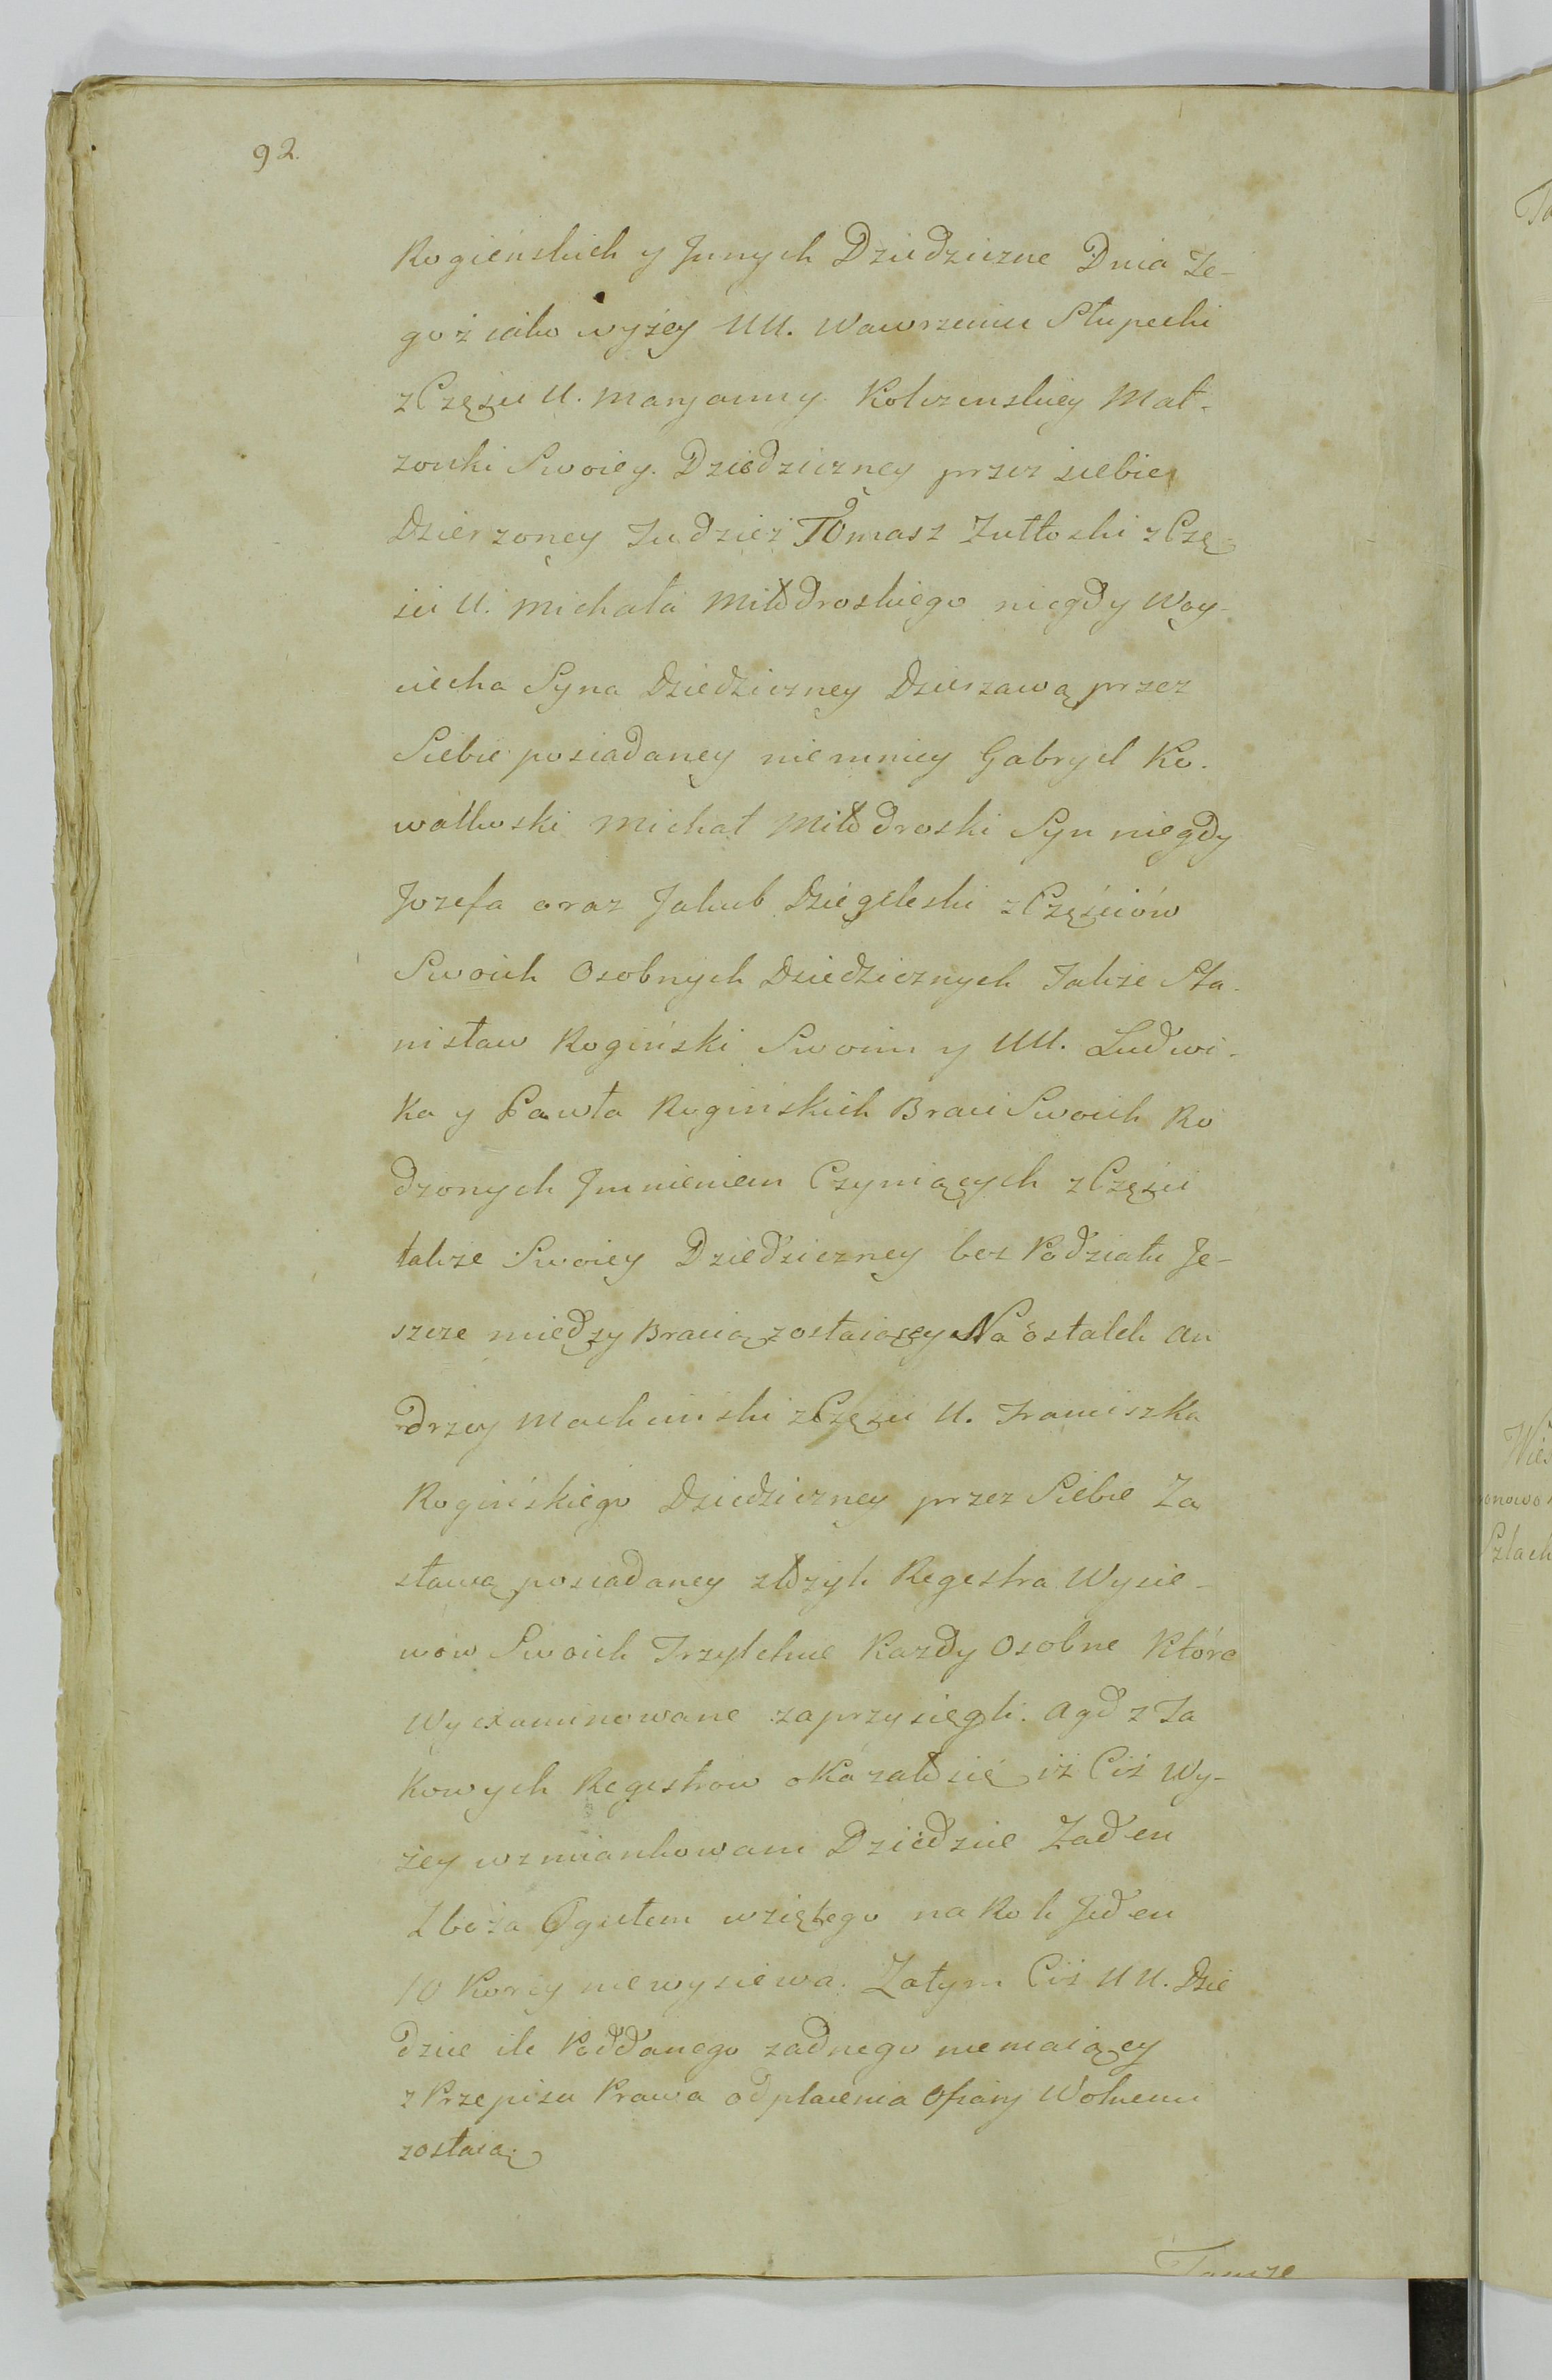 92.
Rogieńskich y Jnnych Dziedziczne Dnia Te-
goż iako wyżey UU. Wawrzeniec Słupecki
z Części U. Maryanny Kolwzenskiey Mał-
zonki Swoiey Dziedziczney przez siebie
Dzierzoney Tudziez Tomasz Zutłoski z Czę-
ści U. Michała Miłodroskiego niegdy Woy-
ciecha Syna Dziedziczney Dzierzawą przez
Siebie posiadaney niemniey Gabryel Ko-
walkwski Michał Miłodroski Syn niegdy
Jozefa oraz Jakub Dzięgeleski z Częściów
Swoich Osobnych Dziedzicznych Takze Sta-
nisław Rogiński Swoim y UU. Ludwi-
ka y Pawła Roginskich Braci Swoich Ro
dzonych Jmnieniem Czyniących z Części
takze Swoiey Dziedziczney bez Podziału Je-
szcze między Bracią zostaiącey Na ostatek An
drzey Machciński z Części U. Franciszka
Rogińskiego Dziedziczney przez Siebie Za
stawą posiadaney złożyli Regestra Wysie-
wów Swoich Trzyletnie Kazdy Osobne Które
Wyexaminowane zaprzysięgli. A gd z Ta
kowych Regestrow okazało się iż Ciż Wy-
żey wzmiankowani Dziedzice Zaden
Zboża Ogułem wziętego na Rok Jeden
10 Korcy niewysiewa. Zatym Ciż UU. Dzie
dzice ile Poddanego zadnego niemaiący
z Przepisu Prawa od płacenia Ofiary Wolnemi
zostaią.
Tamze